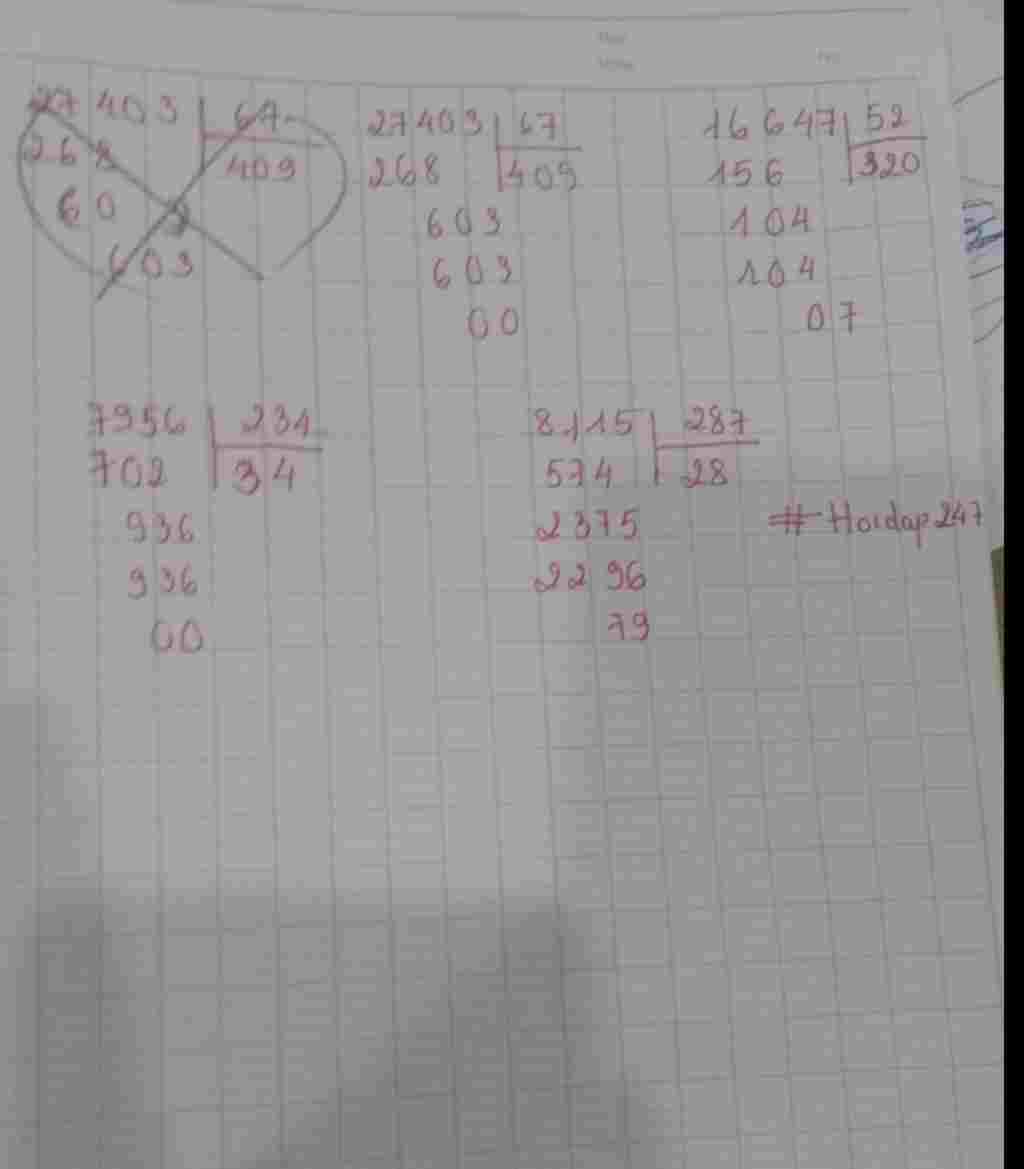 27403 67
268 409
60
603
27403 67
268 409
603
603
00
16647 52
156 320
104
104
07
7956 234
702 34
936
936
00
8115 287
574 28
2375
2296
79
# Hoidap247